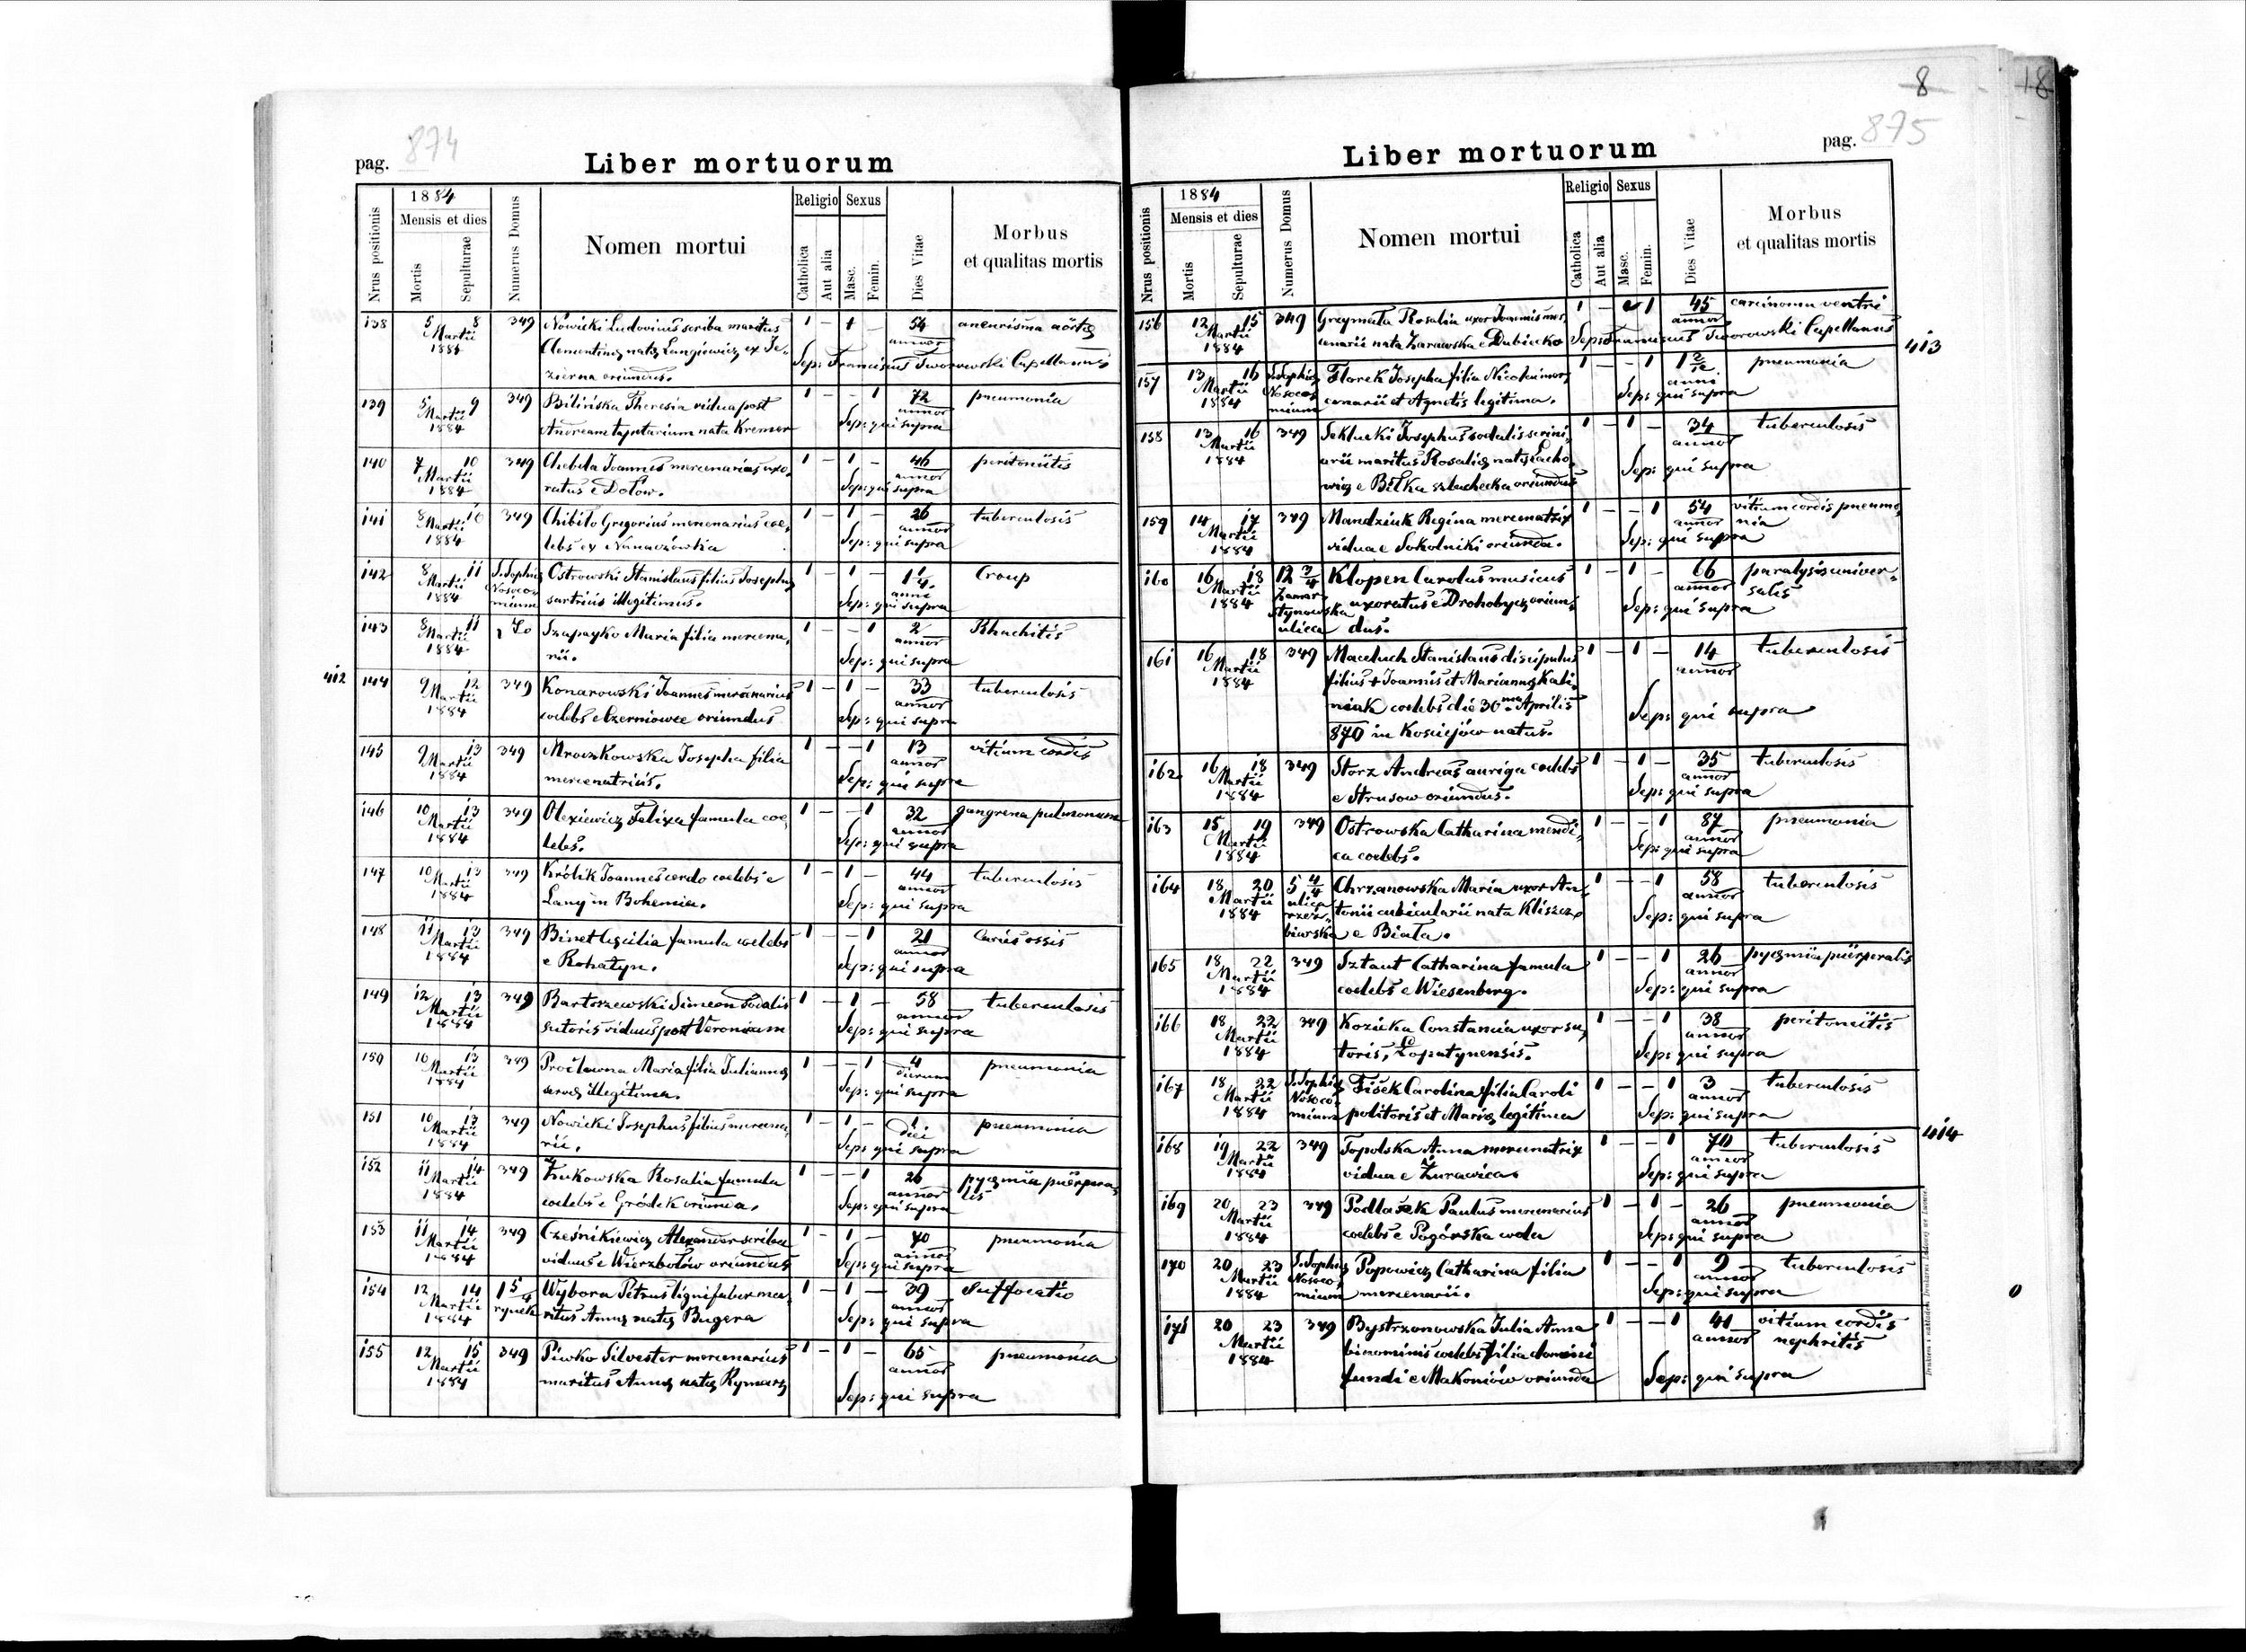 8
18
pag. 874
Liber mortuorum
Nrus positionis
1884
Mensis et dies
Mortis
Sepulturae
Numerus Domus
Nomen mortui
Religio
Catholica
Aut alia
Sexus
Masc.
Femin.
Dies Vitae
Morbus
et qualitas mortis
138 5 8 349 Nowicki Ludovicus scriba maritus 1 – 1 – 54 aneurisma aörtę
Martii Clementinę natę Langiewicz ex Je- annor
1884 zierna oriundus. Sep: Franciscus Tworowski Capellanus
139 5 9 349 Bilińska Theresia vidua post 1 – – 1 72 pneumonia
Martii Andream tapetarium nata Kremer annor
1884 Sep: qui supra
140 7 10 349 Chebda Joannes mercenarius uxo- 1 – 1 – 46 peritonitis
Martii ratus e Dołow. annor
1884 Sep: qui supra
141 8 10 349 Chibilo Gregorius mercenarius coe- 1 – 1 – 26 tuberculosis
Martii lebs ex annor
1884 Sep: qui supra
142 8 11 S. Sophię Ostrowski Stanislaus filius Josephę 1 – 1 – 1 1/4 Croup
Martii Nosoco- sartricis illegitimus. anni
1884 mium Sep: qui supra
143 8 11 Szapayko Maria filia mercena- 1 – – 1 2 Rhachitis
Martii rii. annor
1884 Sep: qui supra
412
144 9 12 349 Konarowski Joannes mercenarius 1 – 1 – 33 tuberculosis
Martii coelebs e Czerniowce oriundus annor
1884 Sep: qui supra
145 9 13 349 Mroczkowska Josepha filia 1 – – 1 13 vitium cordis
Martii mercenatricis. annor
1884 Sep: qui supra
146 10 13 349 Olexiewicz Felixa famula coe- 1 – – 1 32 gangrena pulmonum
Martii lebs. annor
1884 Sep: qui supra
147 10 13 349 Królik Joannes cerdo coelebs e 1 – 1 – 44 tuberculosis
Martii Lany in Bohemia. annor
1884 Sep: qui supra
148 11 13 349 Binet Cęcilia famula coelebs 1 – – 1 21 Caries ossis
Martii e Rohatyn. annor
1884 Sep: qui supra
149 12 13 349 Bartoszewski Simeon sodalis 1 – 1 – 58 tuberculosis
Martii sutoris viduus post Veronicam annor
1884 Sep: qui supra
150 10 13 349 Maria filia Juliannę 1 – – 1 4 pneumonia
Martii illegitima. dierum
1884 Sep: qui supra
151 10 13 349 Nowicki Josephus filius mercena- 1 – 1 – 1 pneumonia
Martii rii. diei
1884 Sep: qui supra
152 11 14 349 Żukowska Rosalia famula 1 – – 1 26 pyęmia püerpera-
Martii coelebs e Gródek oriunda. annor lis
1884 Sep: qui supra
153 11 14 349 Cześnikiewicz Alexander scriba 1 – 1 – 70 pneumonia
Martii viduus e Wierzbołów oriundus annor
1884 Sep: qui supra
154 12 14 15/4 Wybora Petrus lignifaber ma- 1 – 1 – 39 Suffocatio
Martii rynek ritus Annę natę Bugera annor
1884 Sep: qui supra
155 12 15 349 Piwko Silvester mercenarius 1 – 1 – 65 pneumonia
Martii maritus Annę natę Rymarz annor
1884 Sep: qui supra
Liber mortuorum
pag. 875
Nrus positionis
1884
Mensis et dies
Mortis
Sepulturae
Numerus Domus
Nomen mortui
Religio
Catholica
Aut alia
Sexus
Masc.
Femin.
Dies Vitae
Morbus
et qualitas mortis
156 12 15 349 Grzymała Rosalia uxor Joannis mer- 1 – 1 45 carcinoma ventri
Martii cenarii nata Żarawska e Dubiecko annor
1884 Sep: Franciscus Tworowski Capellanus
413
157 13 16 S. Sophię Florek Josepha filia Nicolai mer- 1 – – 1 1 2/12 pneumonia
Martii Nosoco- cenarii et Agnetis legitima. anni
1884 mium Sep: qui supra
158 13 16 349 Seklucki Josephus sodalis scrini- 1 – 1 – 34 tuberculosis
Martii arii maritus Rosalię natę Lacho- annor
1884 wicz e Biłka szlachecka oriundus Sep: qui supra
159 14 17 349 Mandziuk Regina mercenatrix 1 – – 1 54 vitium cordis pneumo-
Martii vidua e Sokolniki oriunda. annor nia
1884 Sep: qui supra
160 16 18 12 3/4 Klopen Carolus musicus 1 – 1 – 66 paralysis univer-
Martii Zamar- uxoratus e Drohobycz oriun- annor salis
1884 stynowska dus. Sep: qui supra
ulica
161 16 18 349 Maceluch Stanislaus discipulus 1 – 1 – 14 tuberculosis
Martii filius + Joannis et Mariannę Kali- annor
1884 niak coelebs die 30ma Aprilis
870 in Kosiejów natus. Sep: qui supra
162 16 18 349 Storz Andreas auriga coelebs 1 – 1 – 35 tuberculosis
Martii e Strusow oriundus. annor
1884 Sep: qui supra
163 15 19 349 Ostrowska Catharina mendi- 1 – – 1 87 pneumonia
Martii ca coelebs. annor
1884 Sep: qui supra
164 18 20 5 4/4 Chrzanowska Maria uxor An- 1 – – 1 58 tuberculosis
Martii ulica tonii cubicularii nata Kliszcz annor
1884 rzeź- e Biała. Sep: qui supra
biarska
165 18 22 349 Sztaut Catharina famula 1 – – 1 26 pyęmia püerperalis
Martii coelebs e Wiesenberg. annor
1884 Sep: qui supra
166 18 22 349 Kozicka Constancia uxor su- 1 – – 1 38 peritonitis
Martii toris, Łopatynensis. annor
1884 Sep: qui supra
167 18 22 S. Sophię Fišek Carolina filia Caroli 1 – – 1 3 tuberculosis
Martii Nosoco- politoris et Marię legitima annor
1884 mium Sep: qui supra
414
168 19 22 349 Topolska Anna mercenatrix 1 – – 1 70 tuberculosis
Martii vidua e Żurawica annor
1884 Sep: qui supra
169 20 23 349 Podlašek Paulus mercenarius 1 – 1 – 26 pneumonia
Martii coelebs e Pogórska wola annor
1884 Sep: qui supra
170 20 23 S. Sophię Popowicz Catharina filia 1 – – 1 9 tuberculosis
Martii Nosoco- mercenarii. annor
1884 mium Sep: qui supra
171 20 23 349 Bystrzonowska Julia Anna 1 – – 1 41 vitium cordis
Martii binominis coelebs filia domini annor nephritis
1884 fundi e Makoniów oriunda Sep: qui supra